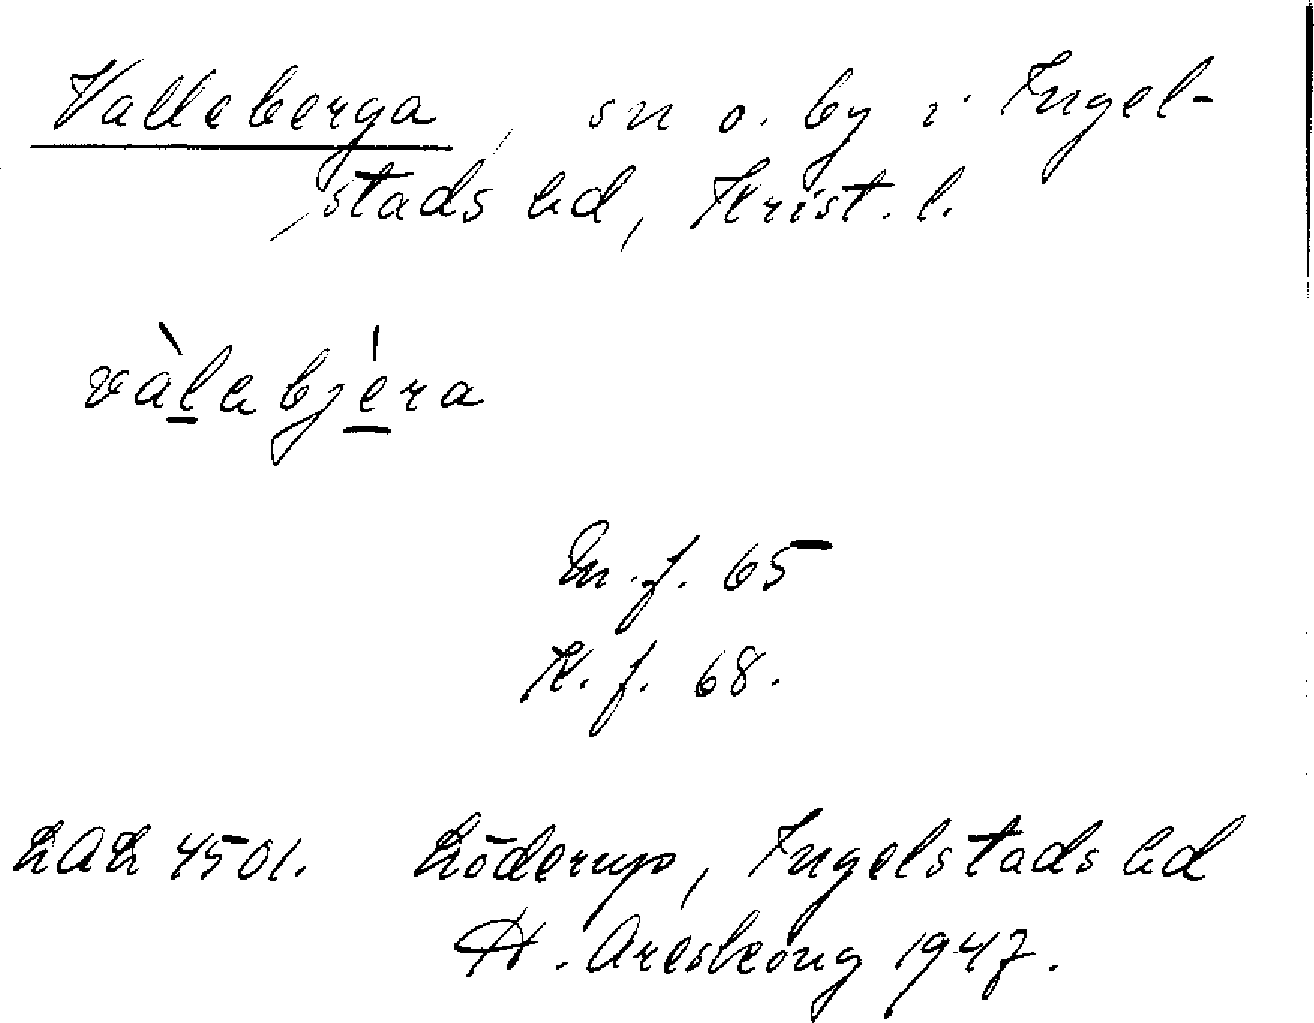 Valleberga, sn o. by i Ingel-
stads hd, Krist. l.
vàlabjéra
M. f. 65
K. f. 68.
LAL 4501. Löderup, Ingelstads hd
H. Areskoug 1947.